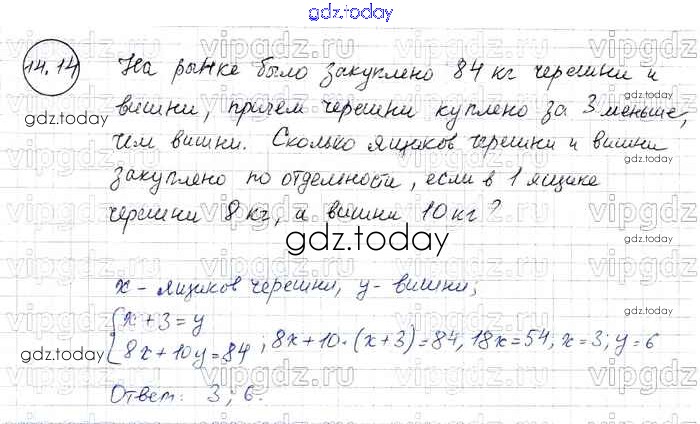 gdz.today
14.14 На рынке было закуплено 84 кг черешни и
вишни, причем черешни куплено за 3 меньше,
gdz.today
чем вишни. Сколько ящиков черешни и вишни
закуплено по отдельности, если в 1 ящике
черешни 8 кг, а вишни 10 кг?
gdz.today
x - ящиков черешни, y - вишни;
{x + 3 = y
{8x + 10y = 84 ; 8x + 10 · (x + 3) = 84, 18x = 54, x = 3; y = 6
gdz.today
Ответ: 3; 6.
vipgdz.ru